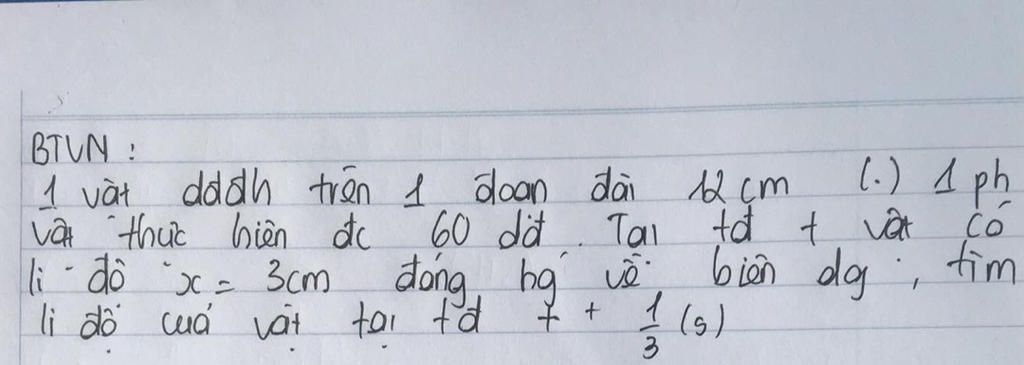 BTVN :
1 vật dđđh trên 1 đoạn dài 12 cm (.) 1 ph
vật thực hiện đc 60 dđ. Tại tđ t vật có
li độ x = 3cm đang hg về biên dg, tìm
li độ của vật tại tđ t + 1/3 (s)